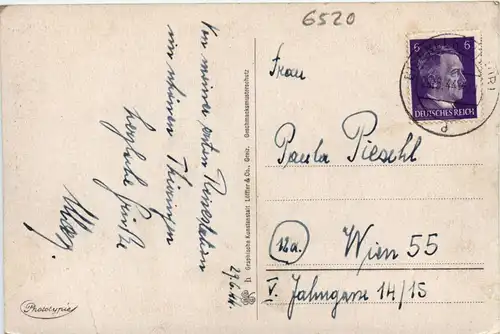 6520
Von meiner ersten Reisestation
im schönen Thüringen
herzliche Grüße
29.6.44.
Phototypie
Graphische Kunstanstalt Löffler & Co., Greiz. Geschmacksmusterschutz
6 6
DEUTSCHES REICH
d
Frau
Paula Pieschl
12a. Wien 55
V. Jahngasse 14/15